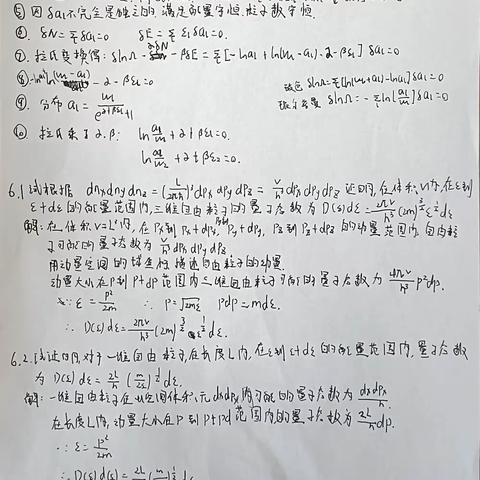 ⑤ 因δa_l不完全是独立的,满足能量守恒,粒子数守恒.
⑥ δN=Σδa_l=0 δE=Σε_lδa_l=0.
⑦ δlnΩ-αδN-βδE=Σ[-lna_l+ln(ω_l-a_l)-α-βε_l]δa_l=0
-α-βε_l=0
⑨ 分布 a_l=ω_l/(e^(α+βε_l)+1)
⑩ 拉氏乘子α.β: ln(a_1/ω_1)+α+βε_1=0.
ln(a_2/ω_2)+α+βε_2=0
6.1 试根据 dn_xdn_ydn_z=(L/2πħ)^3dp_xdp_ydp_z=V/h^3dp_xdp_ydp_z 证明,在体积V内,在ε到
ε+dε的能量范围内,三维自由粒子的量子态数为D(ε)dε=2πV/h^3(2m)^(3/2)ε^(1/2)dε
解:在体积V=L^3内,在p_x到p_x+dp_x,p_y到p_y+dp_y,p_z到p_z+dp_z的动量范围内,自由粒
子可能的量子态数为V/h^3dp_xdp_ydp_z
用动量空间的球坐标描述自由粒子的动量.
动量大小在p到p+dp范围内三维自由粒子可能的量子态数为4πV/h^3p^2dp.
∵ε=p^2/2m ∴p=√2mε pdp=mdε.
∴D(ε)dε=2πV/h^3(2m)^(3/2)ε^(1/2)dε.
6.2.试证明,对于一维自由粒子,在长度L内,在ε到ε+dε的能量范围内,量子态数
为D(ε)dε=2L/h(m/2ε)^(1/2)dε.
解:一维自由粒子在μ空间体积元dxdp_x内可能的量子态数为dxdp_x/h
在长度L内,动量大小在p到p+dp范围内的量子态数为2L/hdp.
∵ε=p^2/2m
∴D(ε)d(ε)=2L/h